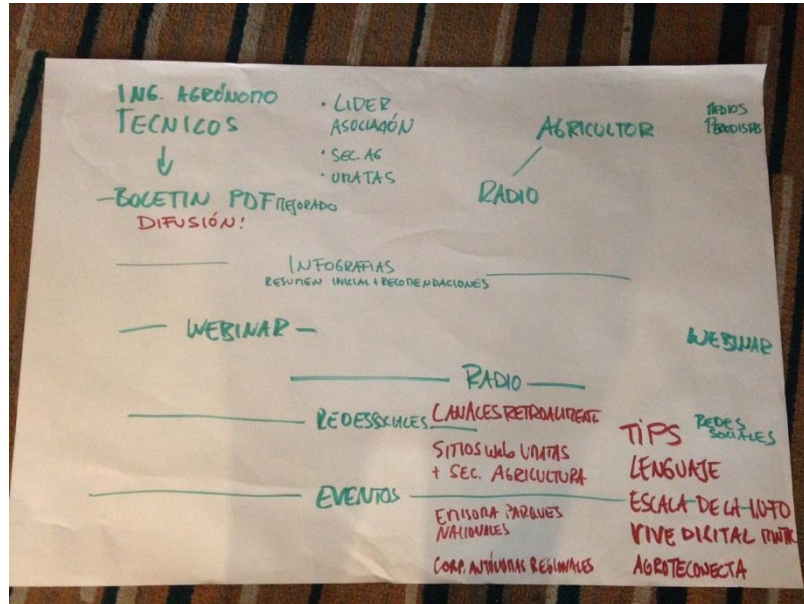 ING. AGRÓNOMO
TECNICOS
· LIDER
ASOCIACIÓN
· SEC. AG
· UMATAS
AGRICULTOR
RADIO
MEDIOS
PERIODISTAS
- BOLETIN PDF MEJORADO
DIFUSIÓN!
INFOGRAFIAS
RESUMEN INICIAL + RECOMENDACIONES
WEBINAR
WEBINAR
RADIO
REDES SOCIALES
CANALES RETROALIMENT.
SITIOS Web UMATAS
+ SEC. AGRICULTURA
EVENTOS
EMISORA PARQUES
NACIONALES
CORP. AUTÓNOMAS REGIONALES
REDES
SOCIALES
TIPS
LENGUAJE
ESCALA DE LA INFO
VIVE DIGITAL MINTIC
AGROTECONECTA